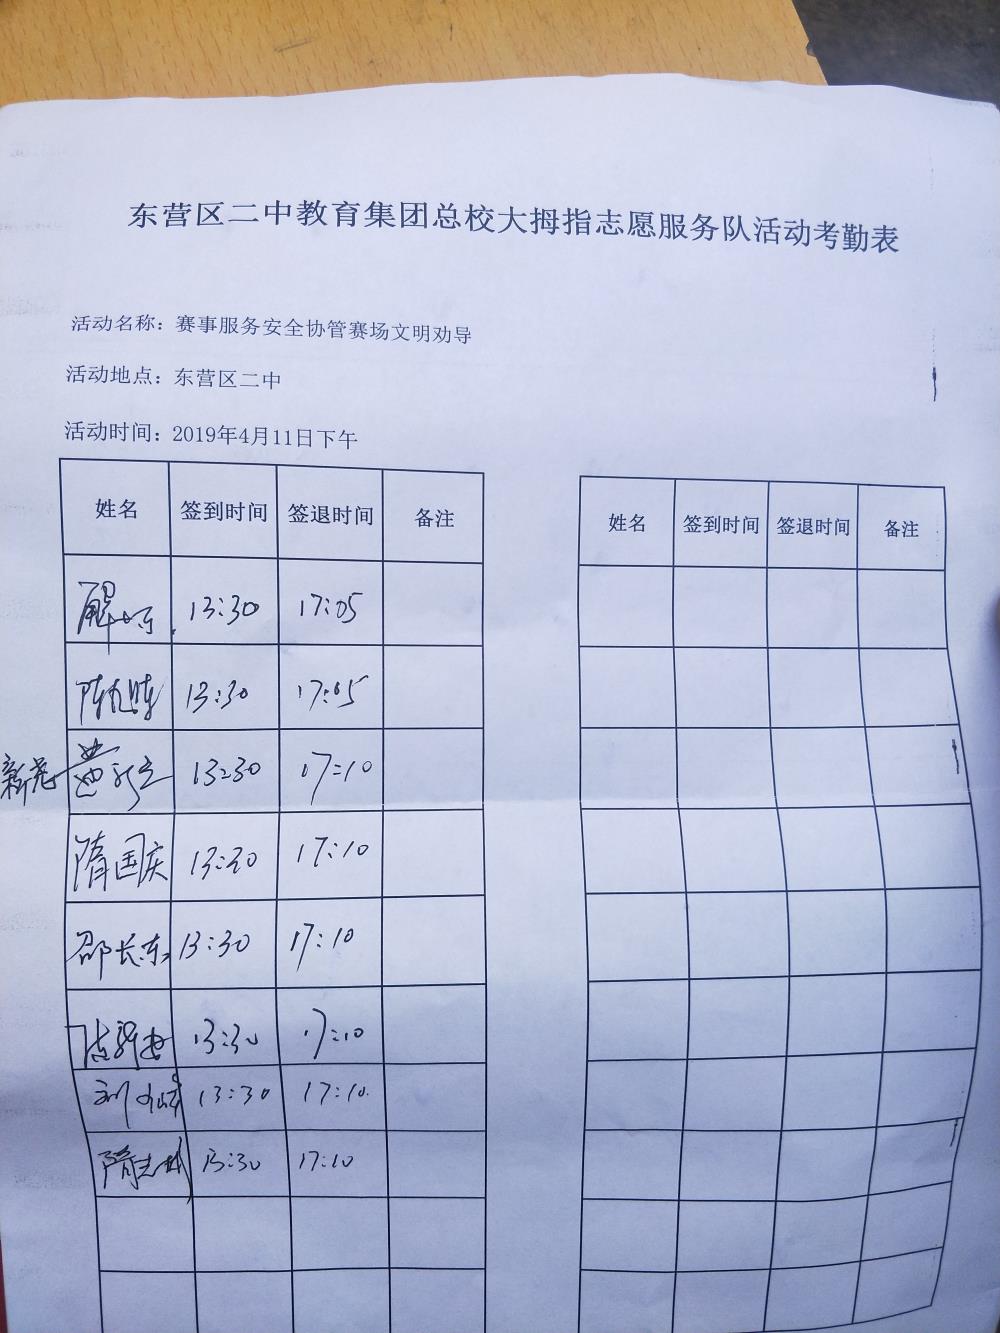 东营区二中教育集团总校大拇指志愿服务队活动考勤表
活动名称：赛事服务安全协管赛场文明劝导
活动地点：东营区二中
活动时间：2019年4月11日下午
姓名 签到时间 签退时间 备注 姓名 签到时间 签退时间 备注
解 13:30 17:05
陈 13:30 17:05
13:30 17:10
隋国庆 13:30 17:10
邵长东 13:30 17:10
13:30 17:10
刘 13:30 17:10
隋志 13:30 17:10